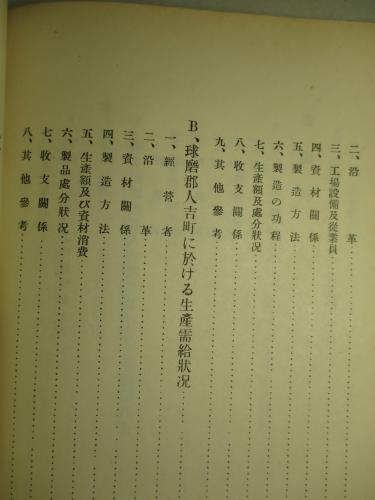 二、沿革
三、工場設備及從業員
四、資材關係
五、製造方法
六、製造の功程
七、生產額及處分狀况
八、收支關係
九、其他參考
B、球磨郡人吉町に於ける生產需給狀况
一、經營者
二、沿革
三、資材關係
四、製造方法
五、生產額及び資材消費
六、製品處分狀况
七、收支關係
八、其他參考